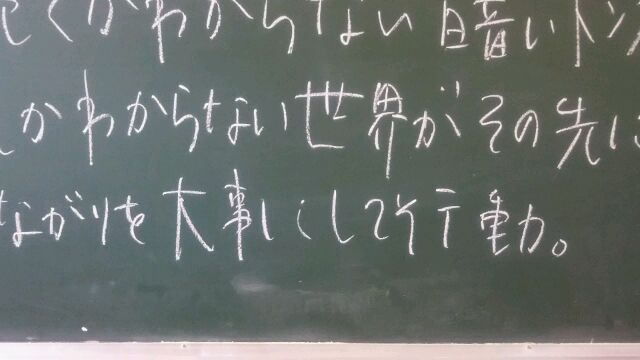 くがわからない暗いトン
かわからない世界がその先に
ながりを大事にして行動。